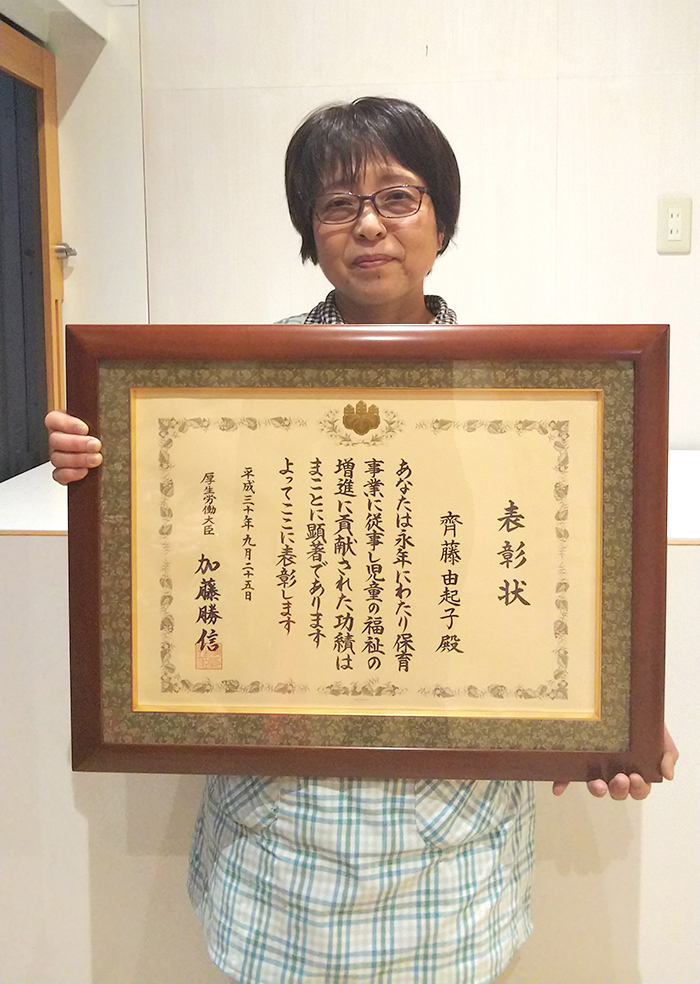 表彰状
齊藤由起子殿
あなたは永年にわたり保育
事業に従事し児童の福祉の
増進に貢献された功績は
まことに顕著であります
よってここに表彰します
平成三十年九月二十五日
厚生労働大臣
加藤勝信